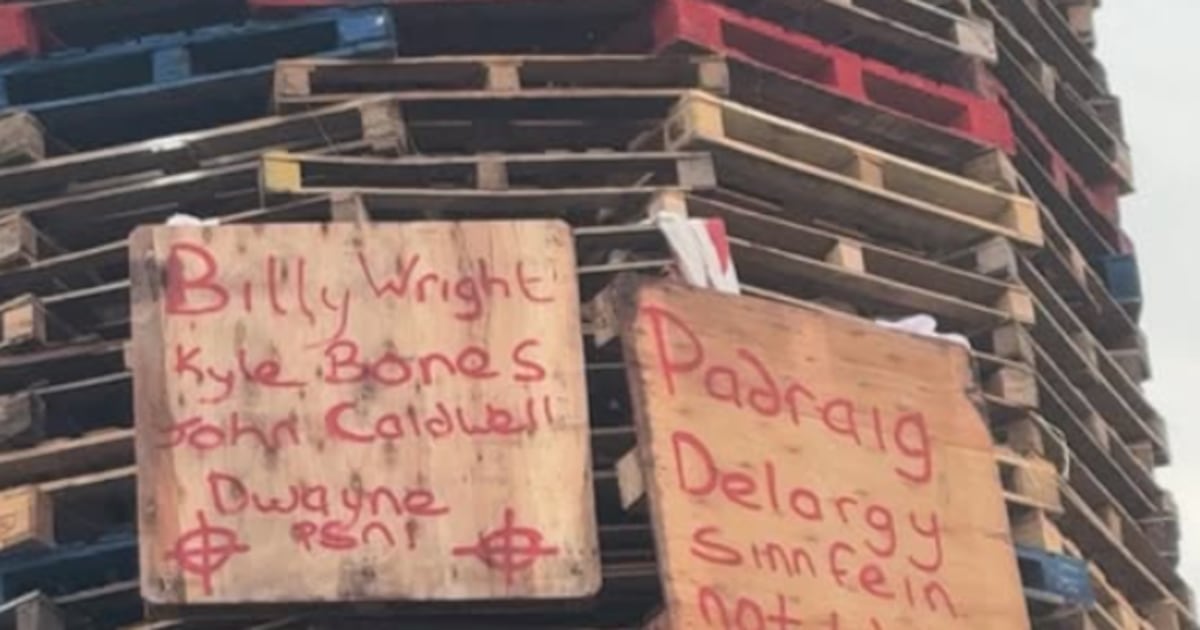 Billy Wright
Kyle Bones
John Caldwell
Dwayne
PSNI
Padraig
Delargy
Sinn fein
not